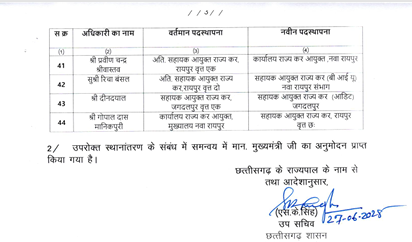 //3//
स क्र अधिकारी का नाम वर्तमान पदस्थापना नवीन पदस्थापना
(1) (2) (3) (4)
41 श्री प्रवीण चन्द्र श्रीवास्तव अति. सहायक आयुक्त राज्य कर, रायपुर वृत्त एक कार्यालय राज्य कर आयुक्त ,नवा रायपुर
42 सुश्री रिचा बंसल अति. सहायक आयुक्त राज्य कर,रायपुर वृत्त दो सहायक आयुक्त राज्य कर (बी आई यू) नवा रायपुर संभाग
43 श्री दीनदयाल सहायक आयुक्त राज्य कर, जगदलपुर वृत्त एक सहायक आयुक्त राज्य कर (आडिट) जगदलपुर
44 श्री गोपाल दास मानिकपुरी कार्यालय राज्य कर आयुक्त, मुख्यालय नवा रायपुर सहायक आयुक्त राज्य कर, रायपुर वृत्त छः
2/ उपरोक्त स्थानांतरण के संबंध में समन्वय में मान. मुख्यमंत्री जी का अनुमोदन प्राप्त
किया गया है।
छत्तीसगढ़ के राज्यपाल के नाम से
तथा आदेशानुसार,
(एस.के.सिंह) 27-06-2025
उप सचिव
छत्तीसगढ़ शासन